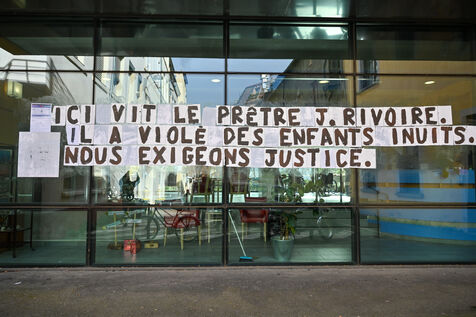 ICI VIT LE PRÊTRE J. RIVOIRE.
IL A VIOLÉ DES ENFANTS INUITS.
NOUS EXIGEONS JUSTICE.